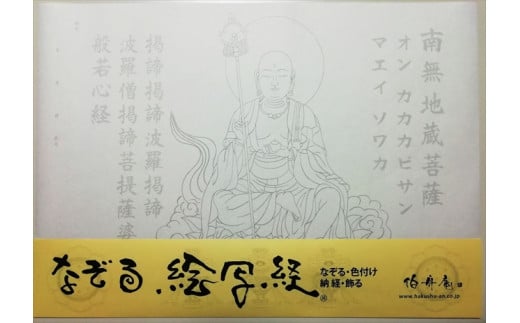 南無地蔵菩薩
オン カカカビサン
マエイ ソワカ
掲諦掲諦波羅掲諦
波羅僧掲諦菩提薩婆
般若心経
なぞる 絵写経®
なぞる・色付け
納経・飾る
www.hakusho-an.co.jp